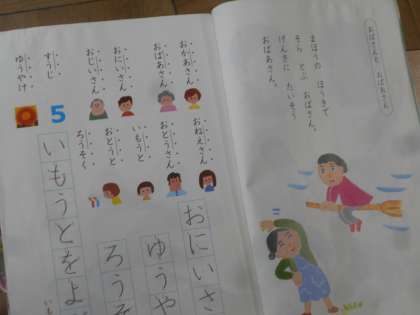 おばさんと おばあさん
まほうの ほうきで
そら とぶ おばさん。
げんきに たいそう
おばあさん。
おかあさん
おばあさん
おにいさん
おじいさん
すうじ
ゆうやけ
5
おねえさん
おとうさん
いもうと
おとうと
ろうそく
おにいさ
ゆうや
ろうそ
いもうとをよ